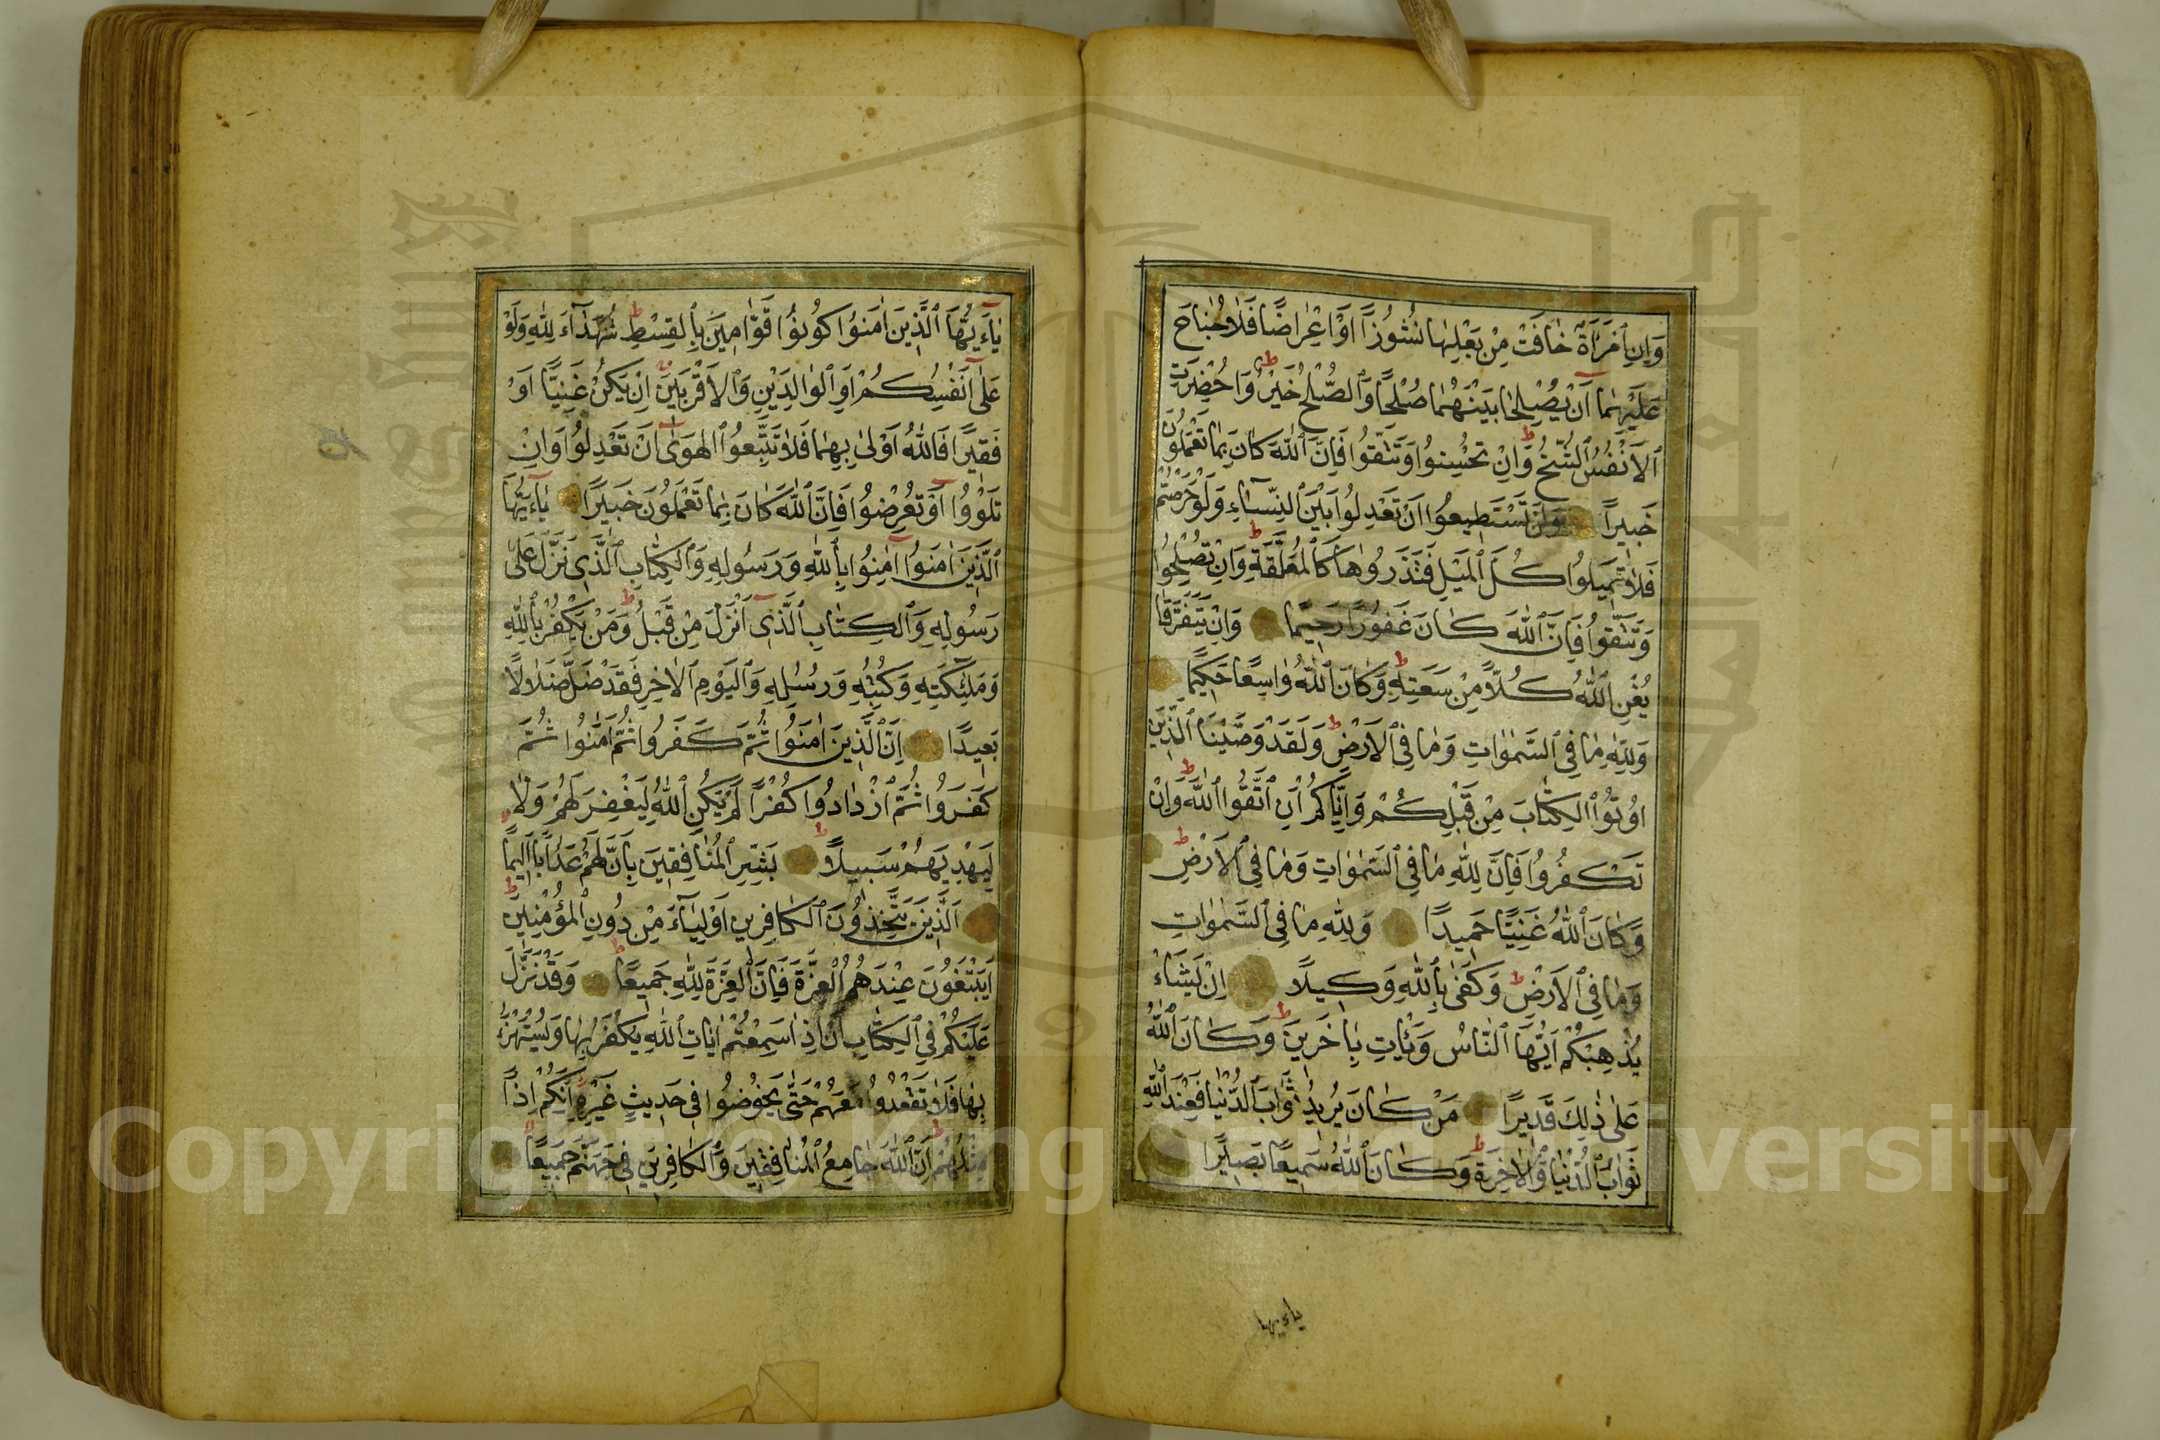 وَاِنِ ٱمْرَاَةٌ خَافَتْ مِنْ بَعْلِهَا نُشُوزًا اَوْ اِعْرَاضًا فَلَا جُنَاحَ
عَلَيْهِمَا اَنْ يُصْلِحَا بَيْنَهُمَا صُلْحًا وَٱلصُّلْحُ خَيْرٌ ط وَاُحْضِرَتِ
ٱلْاَنْفُسُ ٱلشُّحَّ ط وَاِنْ تُحْسِنُوا وَتَتَّقُوا فَاِنَّ ٱللّٰهَ كَانَ بِمَا تَعْمَلُونَ
خَبِيرًا وَلَنْ تَسْتَطِيعُوا اَنْ تَعْدِلُوا بَيْنَ ٱلنِّسَآءِ وَلَوْ حَرَصْتُمْ
فَلَا تَمِيلُوا كُلَّ ٱلْمَيْلِ فَتَذَرُوهَا كَٱلْمُعَلَّقَةِ ط وَاِنْ تُصْلِحُوا
وَتَتَّقُوا فَاِنَّ ٱللّٰهَ كَانَ غَفُورًا رَحِيمًا وَاِنْ يَتَفَرَّقَا
يُغْنِ ٱللّٰهُ كُلًّا مِنْ سَعَتِهِ ط وَكَانَ ٱللّٰهُ وَاسِعًا حَكِيمًا
وَلِلّٰهِ مَا فِي ٱلسَّمٰوَاتِ وَمَا فِي ٱلْاَرْضِ ط وَلَقَدْ وَصَّيْنَا ٱلَّذِينَ
اُوتُوا ٱلْكِتَابَ مِنْ قَبْلِكُمْ وَاِيَّاكُمْ اَنِ ٱتَّقُوا ٱللّٰهَ ط وَاِنْ
تَكْفُرُوا فَاِنَّ لِلّٰهِ مَا فِي ٱلسَّمٰوَاتِ وَمَا فِي ٱلْاَرْضِ ط
وَكَانَ ٱللّٰهُ غَنِيًّا حَمِيدًا وَلِلّٰهِ مَا فِي ٱلسَّمٰوَاتِ
وَمَا فِي ٱلْاَرْضِ ط وَكَفٰى بِٱللّٰهِ وَكِيلًا اِنْ يَشَاْ
يُذْهِبْكُمْ اَيُّهَا ٱلنَّاسُ وَيَاْتِ بِاٰخَرِينَ ط وَكَانَ ٱللّٰهُ
عَلٰى ذٰلِكَ قَدِيرًا مَنْ كَانَ يُرِيدُ ثَوَابَ ٱلدُّنْيَا فَعِنْدَ ٱللّٰهِ
ثَوَابُ ٱلدُّنْيَا وَٱلْاٰخِرَةِ ط وَكَانَ ٱللّٰهُ سَمِيعًا بَصِيرًا
ياءيها
يَآءَيُّهَا ٱلَّذِينَ اٰمَنُوا كُونُوا قَوَّامِينَ بِٱلْقِسْطِ ط شُهَدَآءَ لِلّٰهِ وَلَوْ
عَلٰى اَنْفُسِكُمْ اَوِ ٱلْوَالِدَيْنِ وَٱلْاَقْرَبِينَ اِنْ يَكُنْ غَنِيًّا اَوْ
فَقِيرًا فَٱللّٰهُ اَوْلٰى بِهِمَا فَلَا تَتَّبِعُوا ٱلْهَوٰى اَنْ تَعْدِلُوا وَاِنْ
تَلْوُوا اَوْ تُعْرِضُوا فَاِنَّ ٱللّٰهَ كَانَ بِمَا تَعْمَلُونَ خَبِيرًا يَآءَيُّهَا
ٱلَّذِينَ اٰمَنُوا اٰمِنُوا بِٱللّٰهِ وَرَسُولِهِ وَٱلْكِتَابِ ٱلَّذِي نَزَّلَ عَلٰى
رَسُولِهِ وَٱلْكِتَابِ ٱلَّذِي اَنْزَلَ مِنْ قَبْلُ ط وَمَنْ يَكْفُرْ بِٱللّٰهِ
وَمَلٰئِكَتِهِ وَكُتُبِهِ وَرُسُلِهِ وَٱلْيَوْمِ ٱلْاٰخِرِ فَقَدْ ضَلَّ ضَلَالًا
بَعِيدًا اِنَّ ٱلَّذِينَ اٰمَنُوا ثُمَّ كَفَرُوا ثُمَّ اٰمَنُوا ثُمَّ
كَفَرُوا ثُمَّ ٱزْدَادُوا كُفْرًا لَمْ يَكُنِ ٱللّٰهُ لِيَغْفِرَ لَهُمْ وَلَا
لِيَهْدِيَهُمْ سَبِيلًا ط بَشِّرِ ٱلْمُنَافِقِينَ بِاَنَّ لَهُمْ عَذَابًا اَلِيمًا
ٱلَّذِينَ يَتَّخِذُونَ ٱلْكَافِرِينَ اَوْلِيَآءَ مِنْ دُونِ ٱلْمُؤْمِنِينَ ط
اَيَبْتَغُونَ عِنْدَهُمُ ٱلْعِزَّةَ فَاِنَّ ٱلْعِزَّةَ لِلّٰهِ جَمِيعًا ط وَقَدْ نَزَّلَ
عَلَيْكُمْ فِي ٱلْكِتَابِ اَنْ اِذَا سَمِعْتُمْ اٰيَاتِ ٱللّٰهِ يُكْفَرُ بِهَا وَيُسْتَهْزَءُ
بِهَا فَلَا تَقْعُدُوا مَعَهُمْ حَتّٰى يَخُوضُوا فِي حَدِيثٍ غَيْرِهِ اِنَّكُمْ اِذًا
مِثْلُهُمْ ط اِنَّ ٱللّٰهَ جَامِعُ ٱلْمُنَافِقِينَ وَٱلْكَافِرِينَ فِي جَهَنَّمَ جَمِيعًا
Copyright © King Saud University